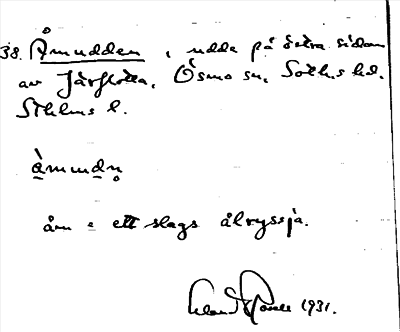 38. Åmudden, udde på östra sidan
av Järflotta, Ösmo sn, Sotholms hd.
Sthlms l.
åmundn̥
åm = ett slags ålryssja.
1931.